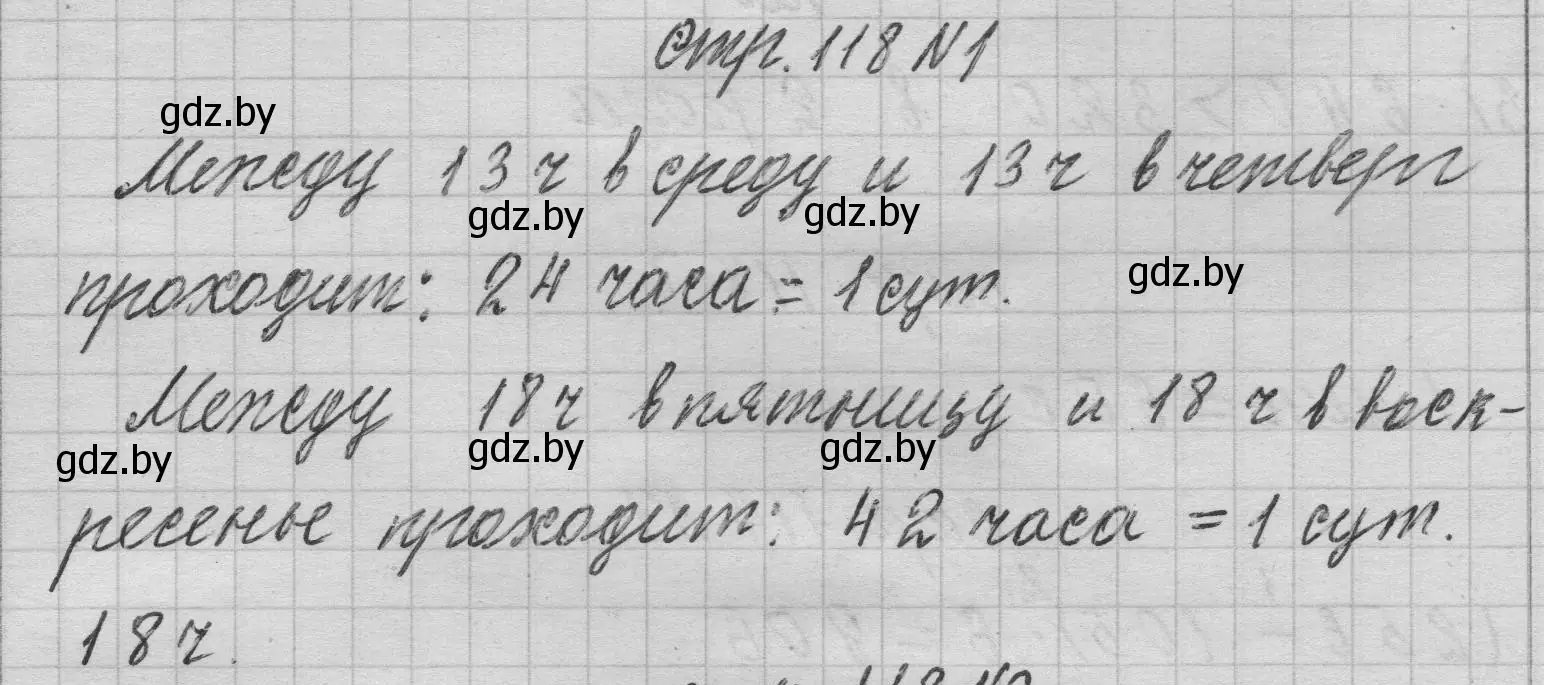 Стр. 118 N1
gdz.by
Между 13 ч в среду и 13 ч в четверг
gdz.by gdz.by
проходит: 24 часа = 1 сут.
gdz.by
Между 18 ч в пятницу и 18 ч в воск-
gdz.by gdz.by gdz.by
ресенье проходит: 42 часа = 1 сут.
18 ч.